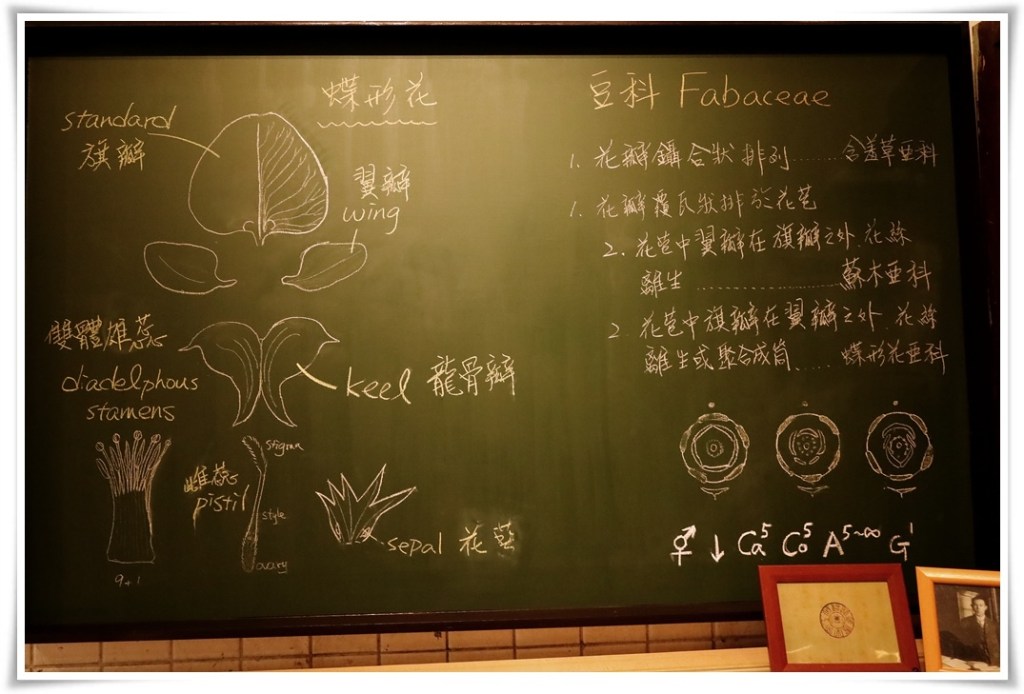 蝶形花
standard
旗瓣
翼瓣
wing
雙體雄蕊
diadelphous
stamens
keel 龍骨瓣
雌蕊
pistil
stigma
style
ovary
9+1
sepal 花萼
豆科 Fabaceae
1. 花瓣鑷合狀排列......含羞草亞科
1. 花瓣覆瓦狀排於花苞
2. 花苞中翼瓣在旗瓣之外,花絲
離生..................蘇木亞科
2. 花苞中旗瓣在翼瓣之外,花絲
離生或聚合成筒.....蝶形花亞科
⚥ ↓ Ca⁵ Co⁵ A⁵~∞ G¹